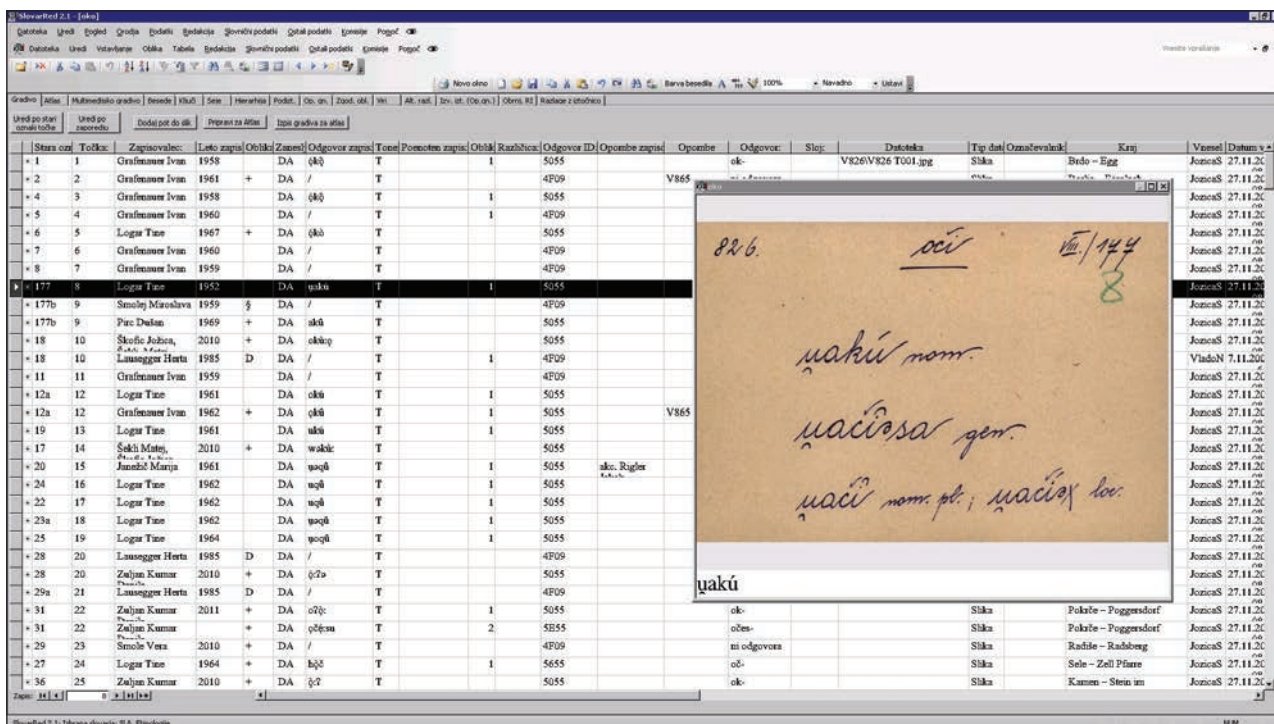 SlovarRed 2.1 - [oko]
Datoteka Uredi Pogled Orodja Podatki Redakcija Slovnični podatki Ostali podatki Komisije Pomoč
Datoteka Uredi Vstavljanje Oblika Tabela Redakcija Slovnični podatki Ostali podatki Komisije Pomoč Vnesite vprašanje
Novo okno Barva besedila 100% Navadno Ustavi
Gradivo Atlas Multimedijsko gradivo Besede Ključi Seje Hierarhija Podst. Op. gn. Zgod. obl. Viri Alt. razl. Izv. ist. (Op.gn.) Obrni. RJ Razlage z iztočnico
Uredi po stari oznaki točke Uredi po zaporedju Dodaj pot do slik Pripravi za Atlas Izpis gradiva za atlas
Stara ozn Točka: Zapisovalec: Leto zapis Oblika Zanesl Odgovor zapis Tone Poenoten zapis: Oblik Različica: Odgovor ID: Opombe zapis Opombe Odgovor: Sloj: Datoteka Tip dat Označevalnik Kraj Vnesel Datum v
1 1 Grafenauer Ivan 1958 DA T 1 5055 ok- V826\V826 T001.jpg Slika Brdo – Egg JozicaS 27.11.20
2 2 Grafenauer Ivan 1961 + DA / T 4F09 V865 JozicaS 27.11.20
4 3 Grafenauer Ivan 1958 DA T 1 5055 JozicaS 27.11.20
5 4 Grafenauer Ivan 1960 DA / T 1 4F09 JozicaS 27.11.20
6 5 Logar Tine 1967 + DA T 5055 JozicaS 27.11.20
7 6 Grafenauer Ivan 1960 DA / T 4F09 JozicaS 27.11.20
8 7 Grafenauer Ivan 1959 DA / T 4F09 JozicaS 27.11.20
177 8 Logar Tine 1952 DA u̯akú T 1 5055 JozicaS 27.11.20
177b 9 Smolej Miroslava 1959 § DA / T 4F09 JozicaS 27.11.20
177b 9 Pirc Dušan 1969 + DA T 5055 JozicaS 27.11.20
18 10 Škofic Jožica, 2010 + DA T 5055 JozicaS 27.11.20
18 10 Lausegger Herta 1985 D DA / T 1 4F09 VladoN 7.11.200
11 11 Grafenauer Ivan 1959 DA / T 4F09 JozicaS 27.11.20
12a 12 Logar Tine 1961 DA T 1 5055 JozicaS 27.11.20
12a 12 Grafenauer Ivan 1962 + DA T 1 5055 V865 JozicaS 27.11.20
19 13 Logar Tine 1961 DA T 1 5055 JozicaS 27.11.20
17 14 Šekli Matej, 2010 + DA T 5055 JozicaS 27.11.20
20 15 Janežič Marija 1961 DA T 1 5055 akc. Rigler JozicaS 27.11.20
24 16 Logar Tine 1962 DA T 1 5055 JozicaS 27.11.20
22 17 Logar Tine 1962 DA T 1 5055 JozicaS 27.11.20
23a 18 Logar Tine 1962 DA T 1 5055 JozicaS 27.11.20
25 19 Logar Tine 1964 DA T 1 5055 JozicaS 27.11.20
28 20 Lausegger Herta 1985 D DA / T 4F09 JozicaS 27.11.20
28 20 Zuljan Kumar 2010 + DA T 5055 JozicaS 27.11.20
29a 21 Lausegger Herta 1985 D DA / T 4F09 JozicaS 27.11.20
31 22 Zuljan Kumar 2011 + DA T 1 5055 ok- Slika Pokrče – Poggersdorf JozicaS 27.11.20
31 22 Zuljan Kumar + DA T 2 5E55 očes- Slika Pokrče – Poggersdorf JozicaS 27.11.20
29 23 Smole Vera 2010 + DA / T 4F09 ni odgovora Slika Radiše – Radsberg JozicaS 27.11.20
27 24 Logar Tine 1964 + DA T 1 5655 oč- Slika Sele – Zell Pfarre JozicaS 27.11.20
36 25 Zuljan Kumar 2010 + DA T 5055 ok- Slika Kamen – Stein im JozicaS 27.11.20
oko
826. oči VIII./177
8
u̯akú nom.
u̯ačíəsa gen.
u̯ačí nom. pl.; u̯ačíəχ loc.
u̯akú
Zapis: 8
SlovarRed 2.1: Izbrana slovarja: SLA, Etimologija NUM